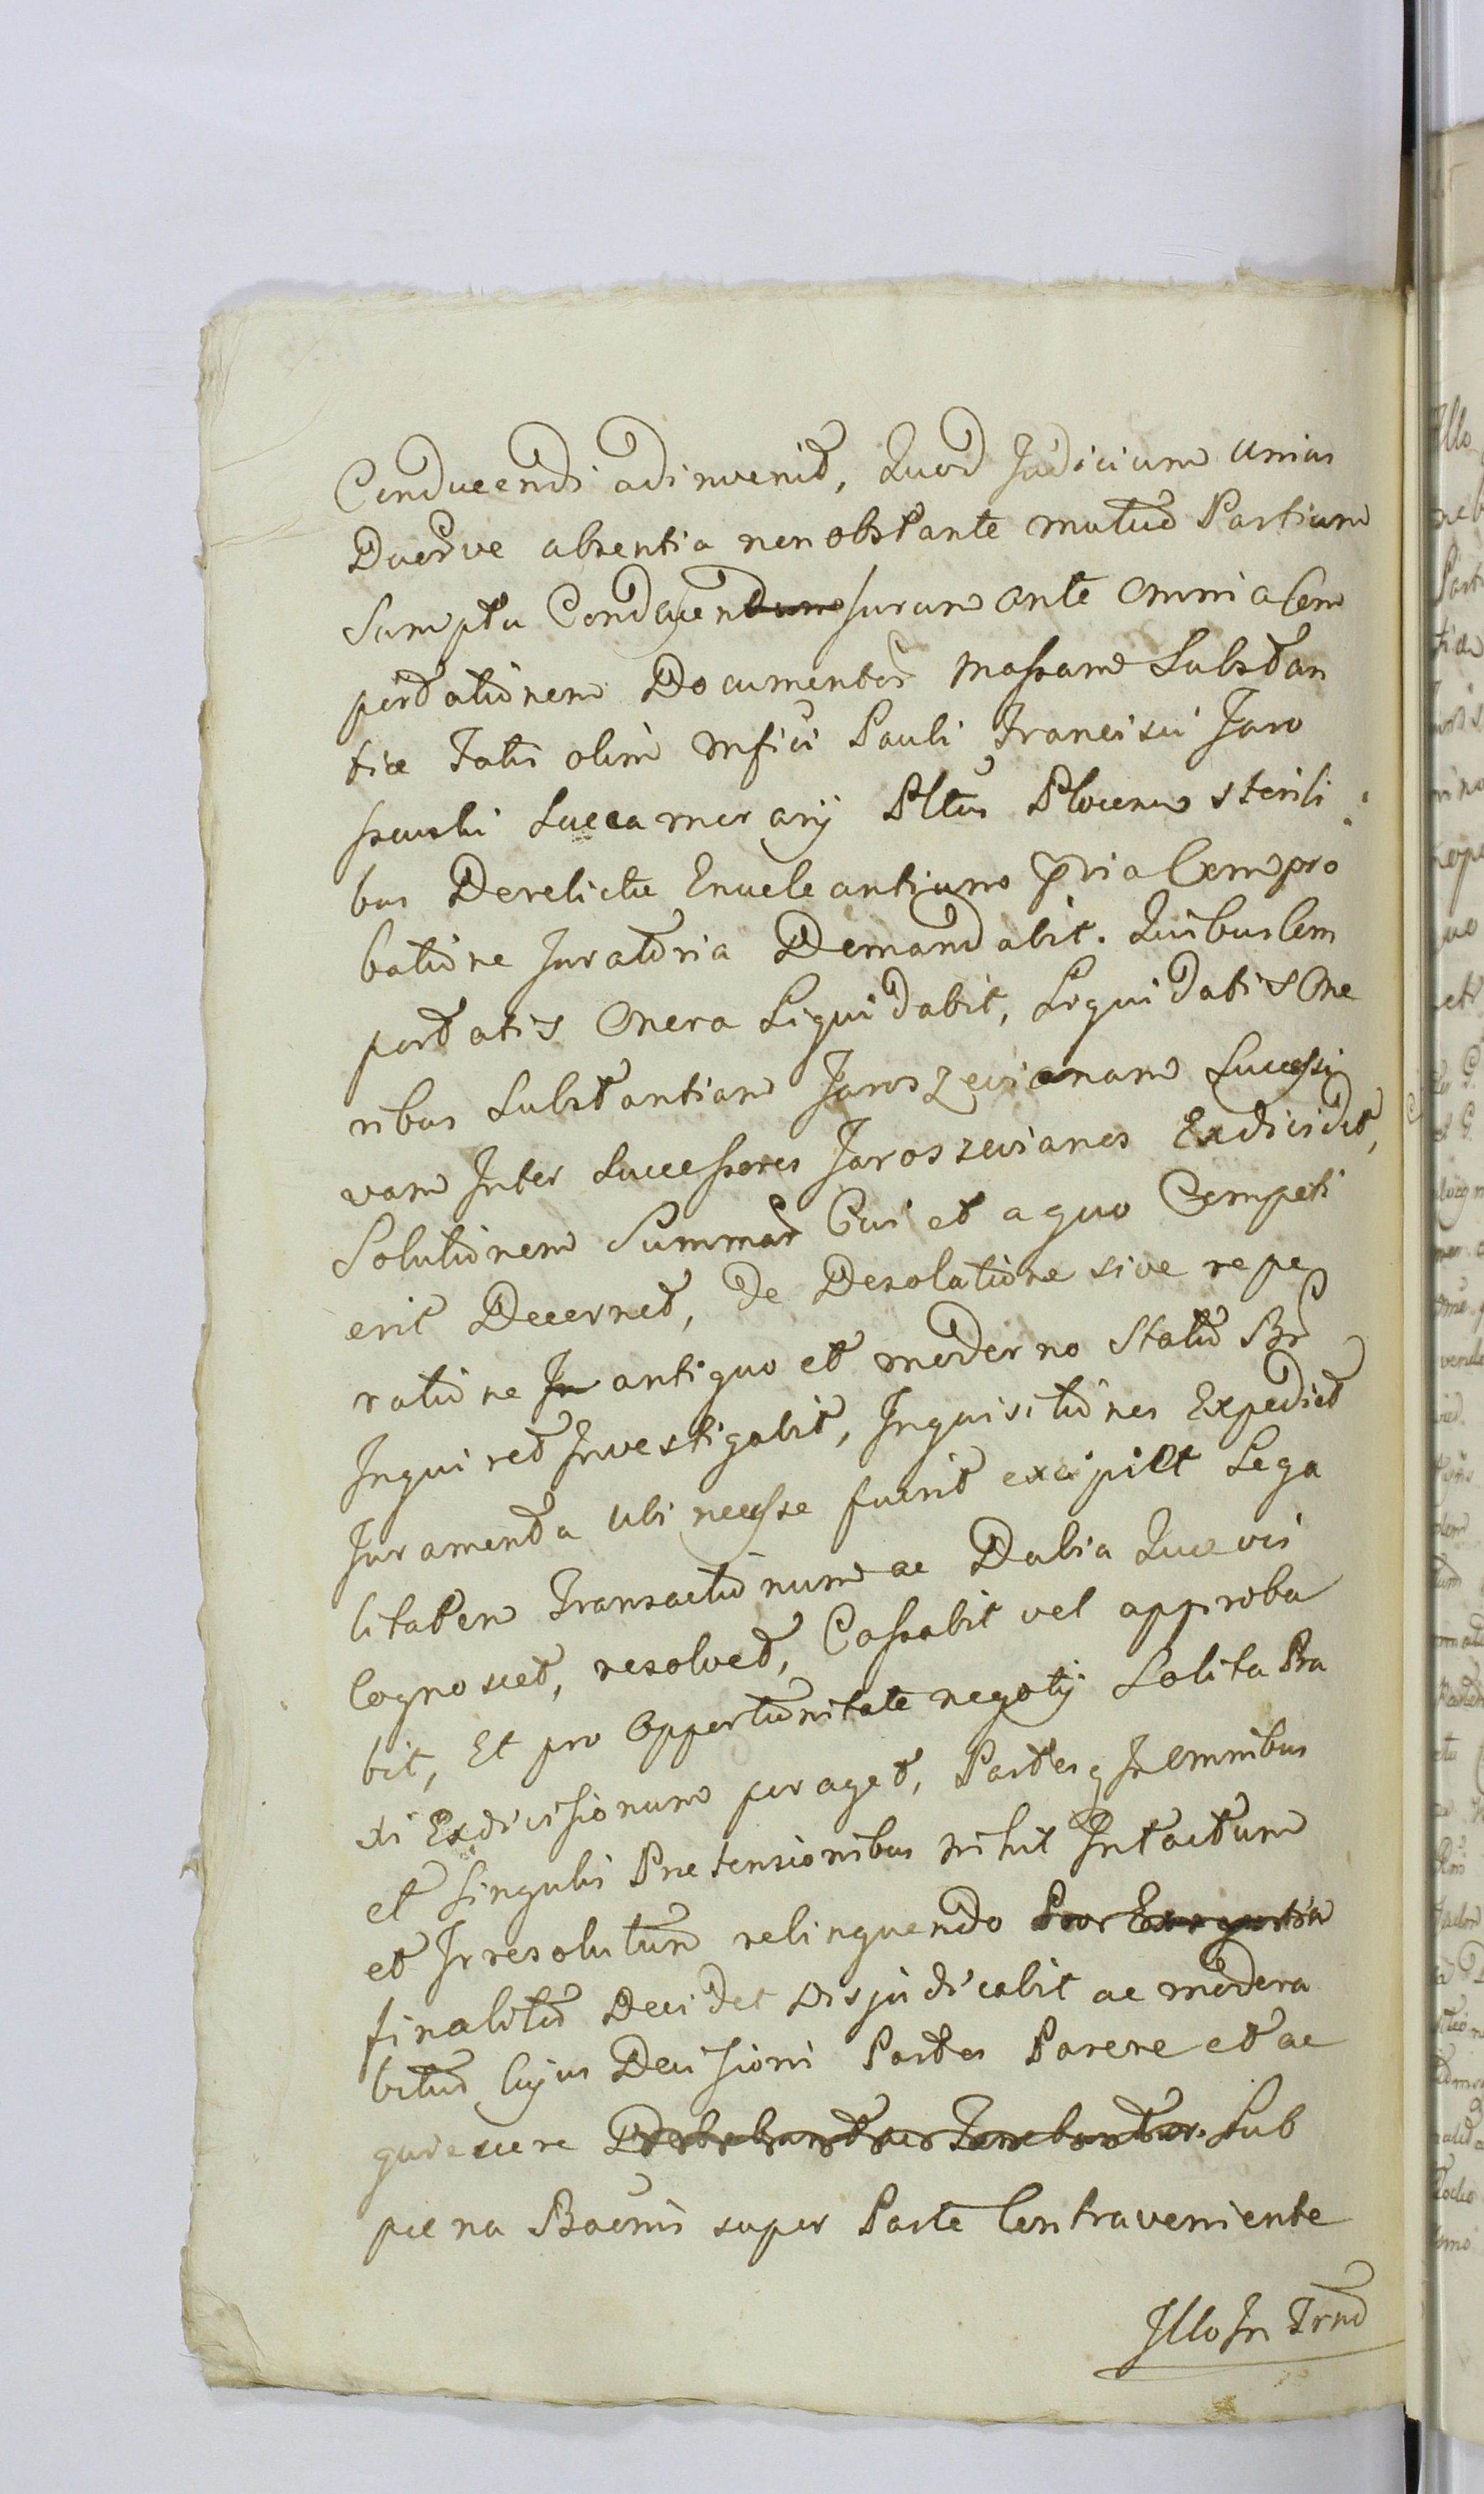 Conducendi adinvenit, Quod Judicium unius
Duorve absentia non obstante mutuo Partium
Sumptu Conducen surum ante omnia Com
portationem Documentor massam Substan
tiæ Totis olim Mfici Pauli Francisci Jaro
szewski Succamerarij Pltus Plocens sterili
bus Derelictæ Enucleantium pria Compro
batione Juratoria Demandabit. Quibus Com
portatis Onera Liquidabit, Liquidatis One
ribus Substantiam Jaroszewianam Successi
vam Inter Successores Jaroszewianos Exdividet,
Solutionem Summar Cui et a quo Competi
erit Decernet, De Desolatione sive repe
ratione In antiquo et moderno Statu Br
Inquiret Investigabit, Inquisitiones Expediet
Juramenta Ubi necesse fuerit excipiet Lega
litatem Transactionum ac Dubia Quævis
Cognoscet, resolvet, Cassabit vel approba
bit, Et pro Opportunitate negotij Solita Pra
xi Exdivisionum peraget, Partesq In omnibus
et singulis Prætensionibus nihil Intactum
et Irresolutum relinquendo
finalitur Decidet Disjudicabit ac modera
bitur Cujus Decisioni Partes Parere et ac
quiescere Sub
pæna Baonis super Parte Contraveniente
Illo In Trno